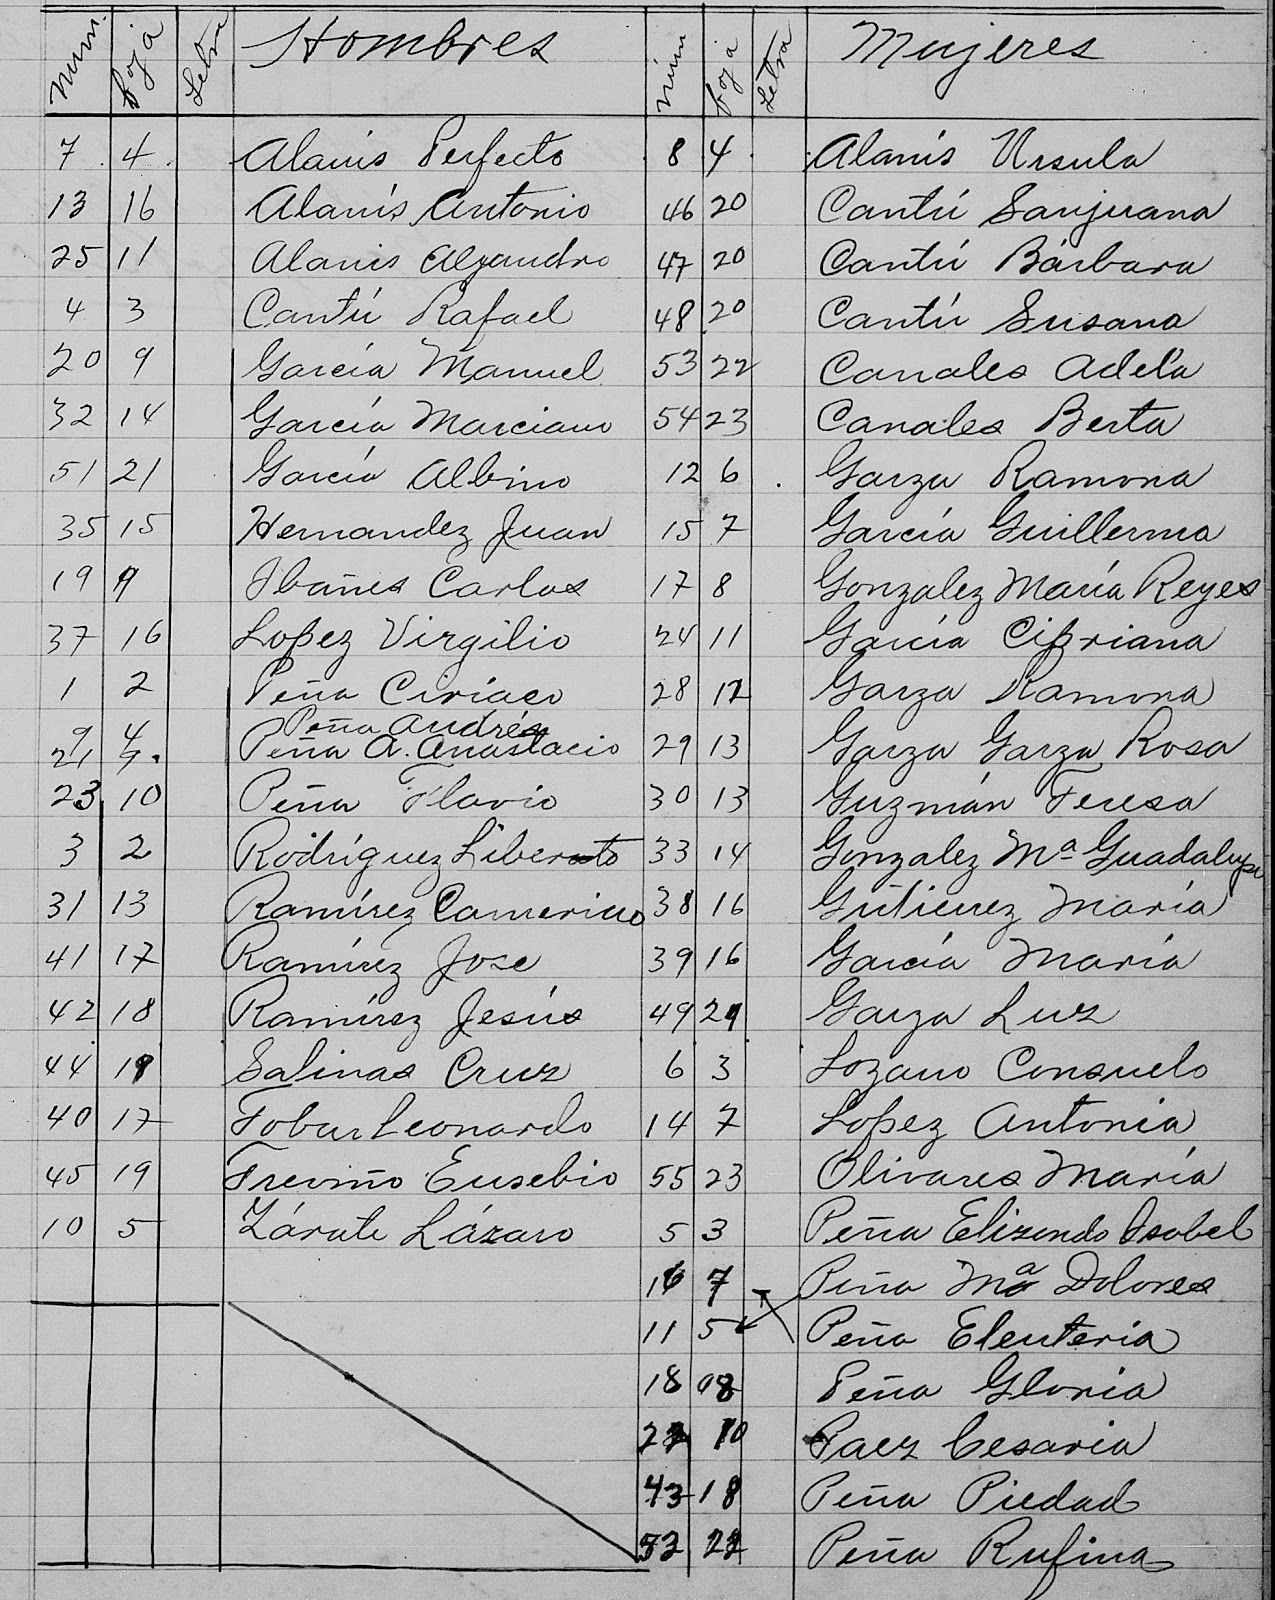 Num. foja Letra Hombres Núm foja Letra Mujeres
7 4 Alanís Perfecto 8 4 Alanís Ursula
13 16 Alanís Antonio 46 20 Cantú Sanjuana
25 11 Alanís Alejandro 47 20 Cantú Bárbara
4 3 Cantú Rafael 48 20 Cantú Susana
20 9 García Manuel 53 22 Canales Adela
32 14 García Marciano 54 23 Canales Berta
51 21 García Albino 12 6 Garza Ramona
35 15 Hernandez Juan 15 7 García Guillerma
19 9 Ibañes Carlos 17 8 Gonzalez María Reyes
37 16 Lopez Virgilio 24 11 García Cipriana
1 2 Peña Ciriaco 28 12 Garza Ramona
9 4 Peña Andrés
21 Peña A. Anastacio 29 13 Garza Garza Rosa
23 10 Peña Flavio 30 13 Guzmán Teresa
3 2 Rodríguez Liberato 33 14 Gonzalez Mª Guadalupe
31 13 Ramírez Camerino 38 16 Gutierrez María
41 17 Ramírez Jose 39 16 García María
42 18 Ramírez Jesús 49 21 Garza Luz
44 19 Salinas Cruz 6 3 Lozano Consuelo
40 17 Tobar Leonardo 14 7 Lopez Antonia
45 19 Treviño Eusebio 55 23 Olivares María
10 5 Zárate Lázaro 5 3 Peña Elizondo Isabel
16 7 Peña Mª Dolores
11 5 Peña Eleuteria
18 8 Peña Gloria
22 10 Paez Cesaria
43 18 Peña Piedad
52 22 Peña Rufina